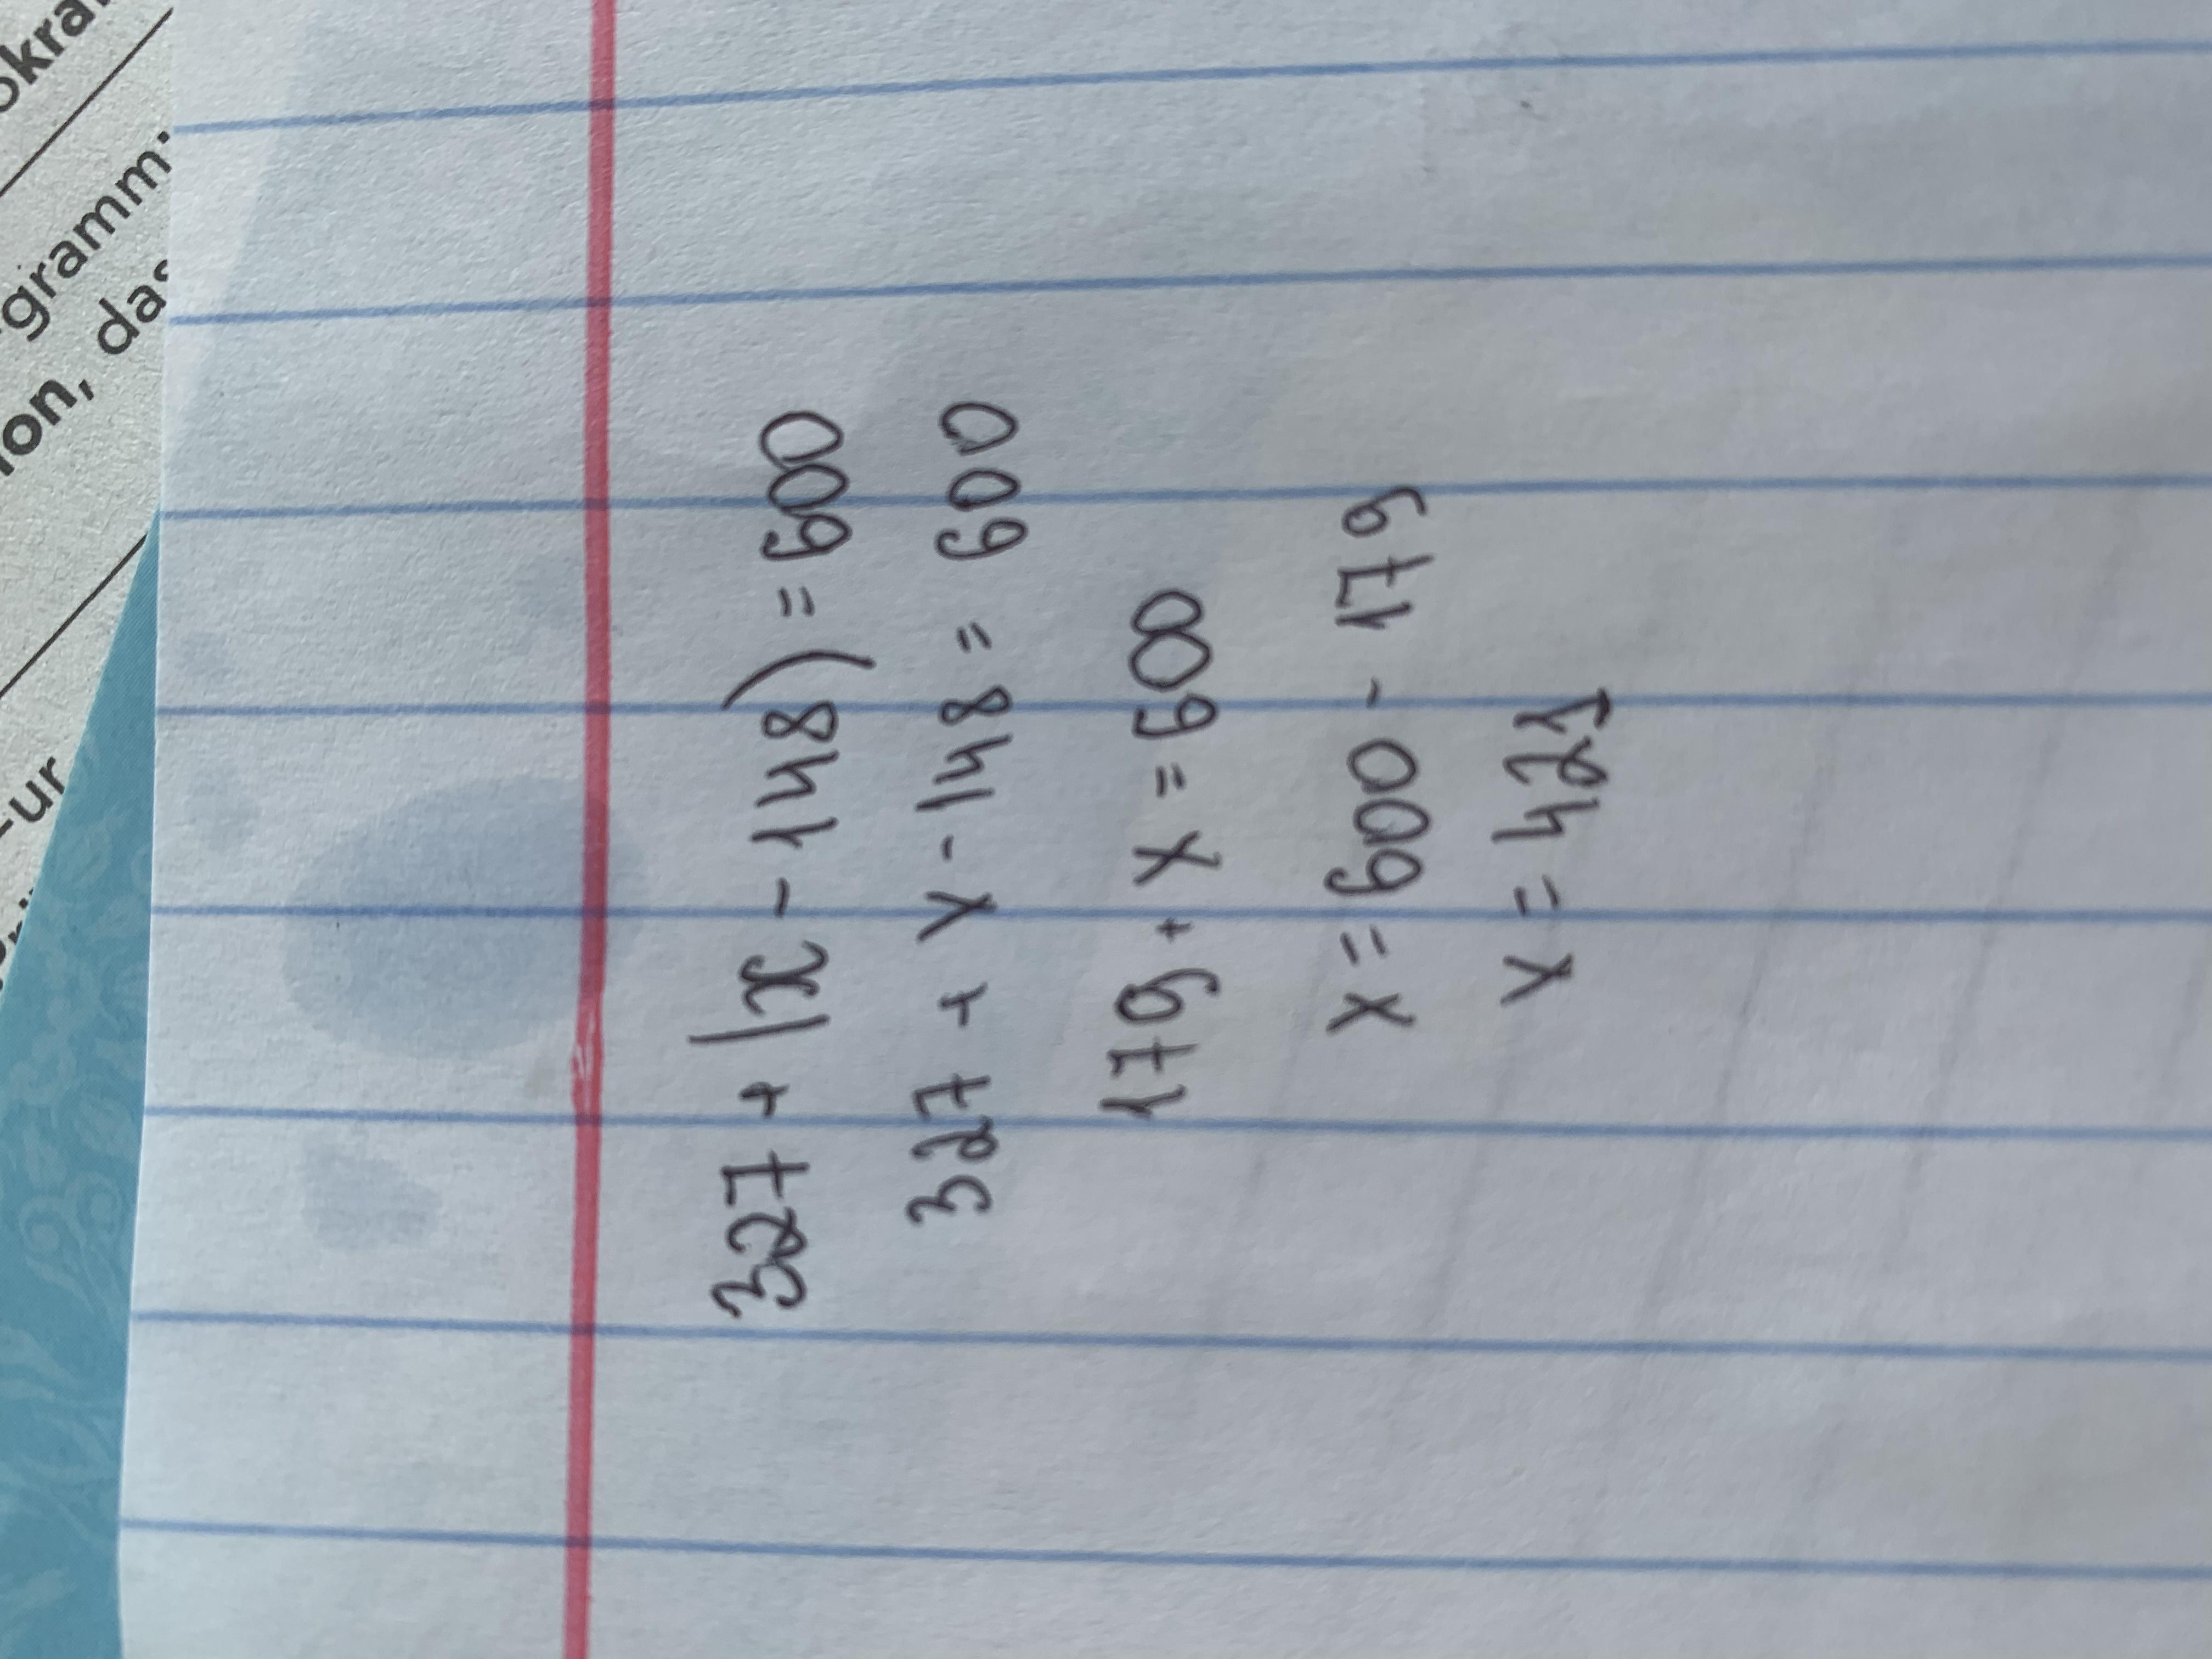 okra
gramm:
ion, das
ur
327 + (x - 148) = 600
327 + x - 148 = 600
179 + x = 600
x = 600 - 179
x = 421